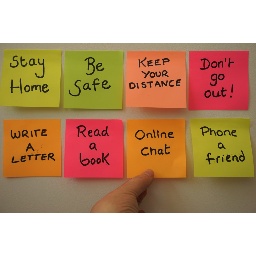 Stay
Home
Be
Safe
KEEP
YOUR
DISTANCE
Don't
go
out!
WRITE
A
LETTER
Read
a
book
Online
Chat
Phone
a
friend